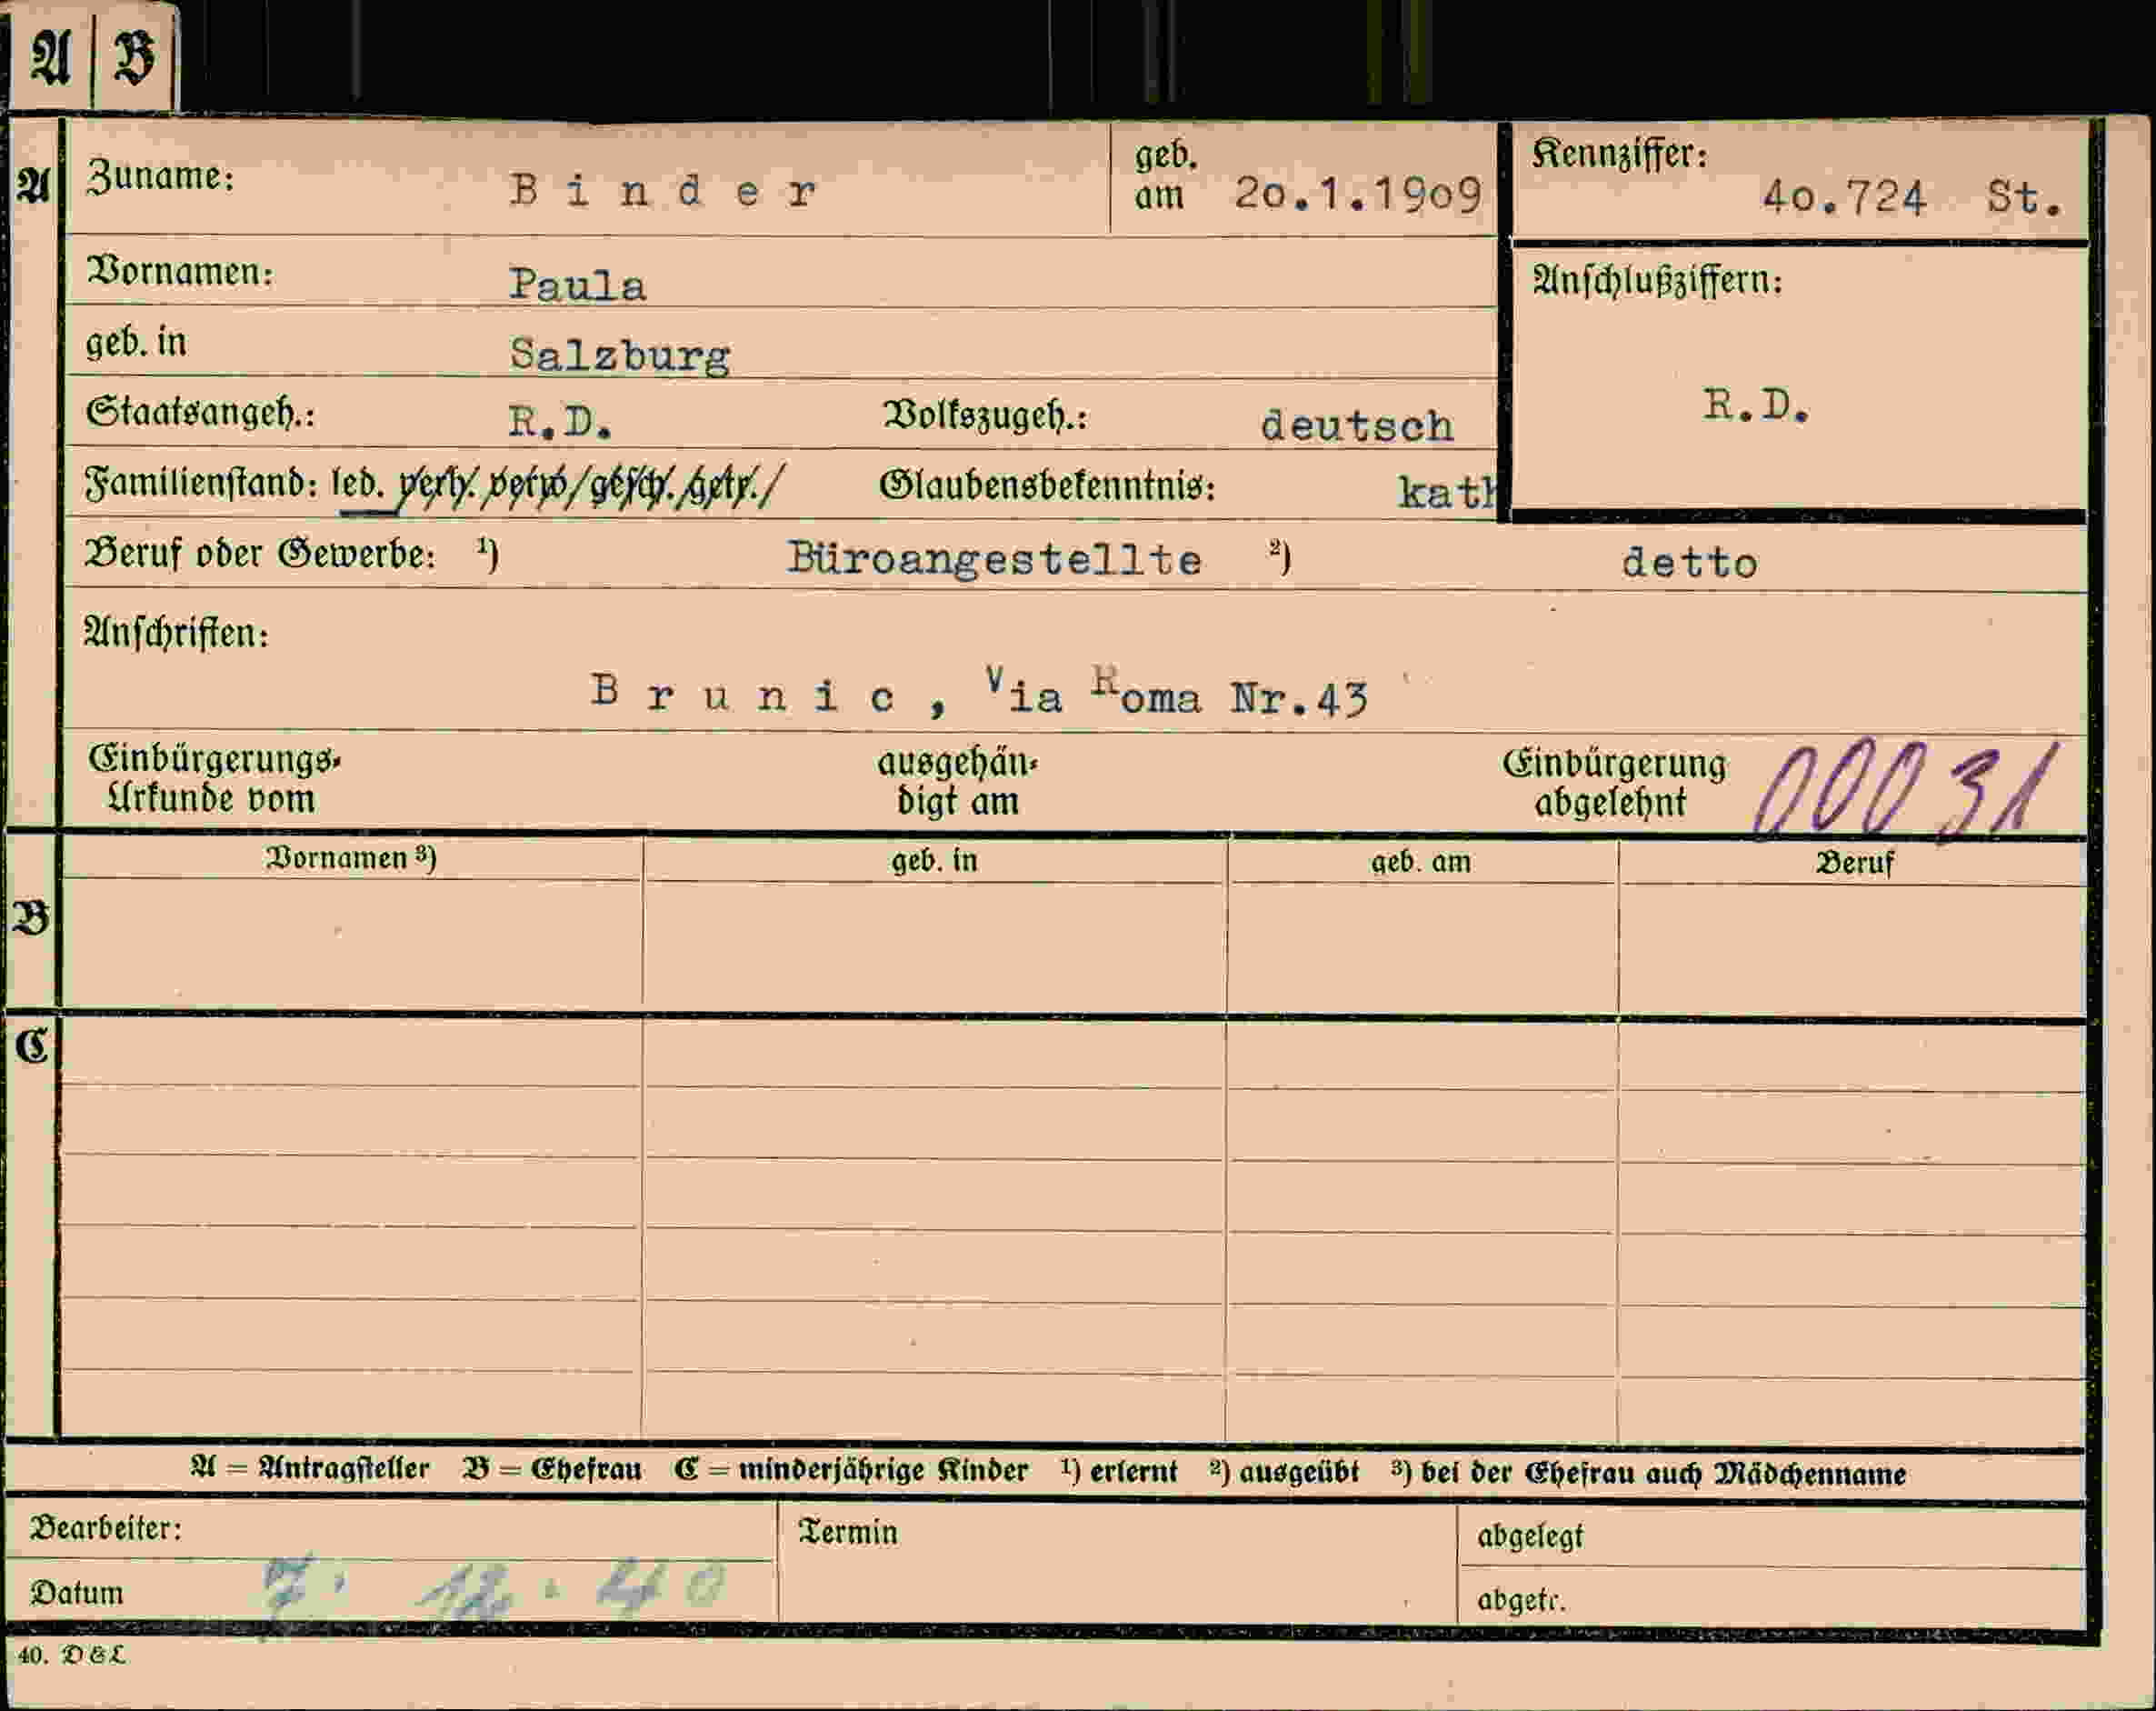 A B
A Zuname: Binder geb. am 2o.1.19o9 Kennziffer: 4o.724 St.
Vornamen: Paula Anschlußziffern:
geb. in Salzburg
Staatsangeh.: R.D. Volkszugeh.: deutsch R.D.
Familienstand: led. verh. verw. gesch. getr. Glaubensbekenntnis: kath
Beruf oder Gewerbe: 1) Büroangestellte 2) detto
Anschriften:
Brunic, Via Roma Nr.43
Einbürgerungs- Urkunde vom ausgehän- digt am Einbürgerung abgelehnt 00031
Vornamen 3) geb. in geb. am Beruf
B
C
A = Antragsteller B = Ehefrau C = minderjährige Kinder 1) erlernt 2) ausgeübt 3) bei der Ehefrau auch Mädchenname
Bearbeiter: Termin abgelegt
Datum 7. 12. 40 abgetr.
40. D & L